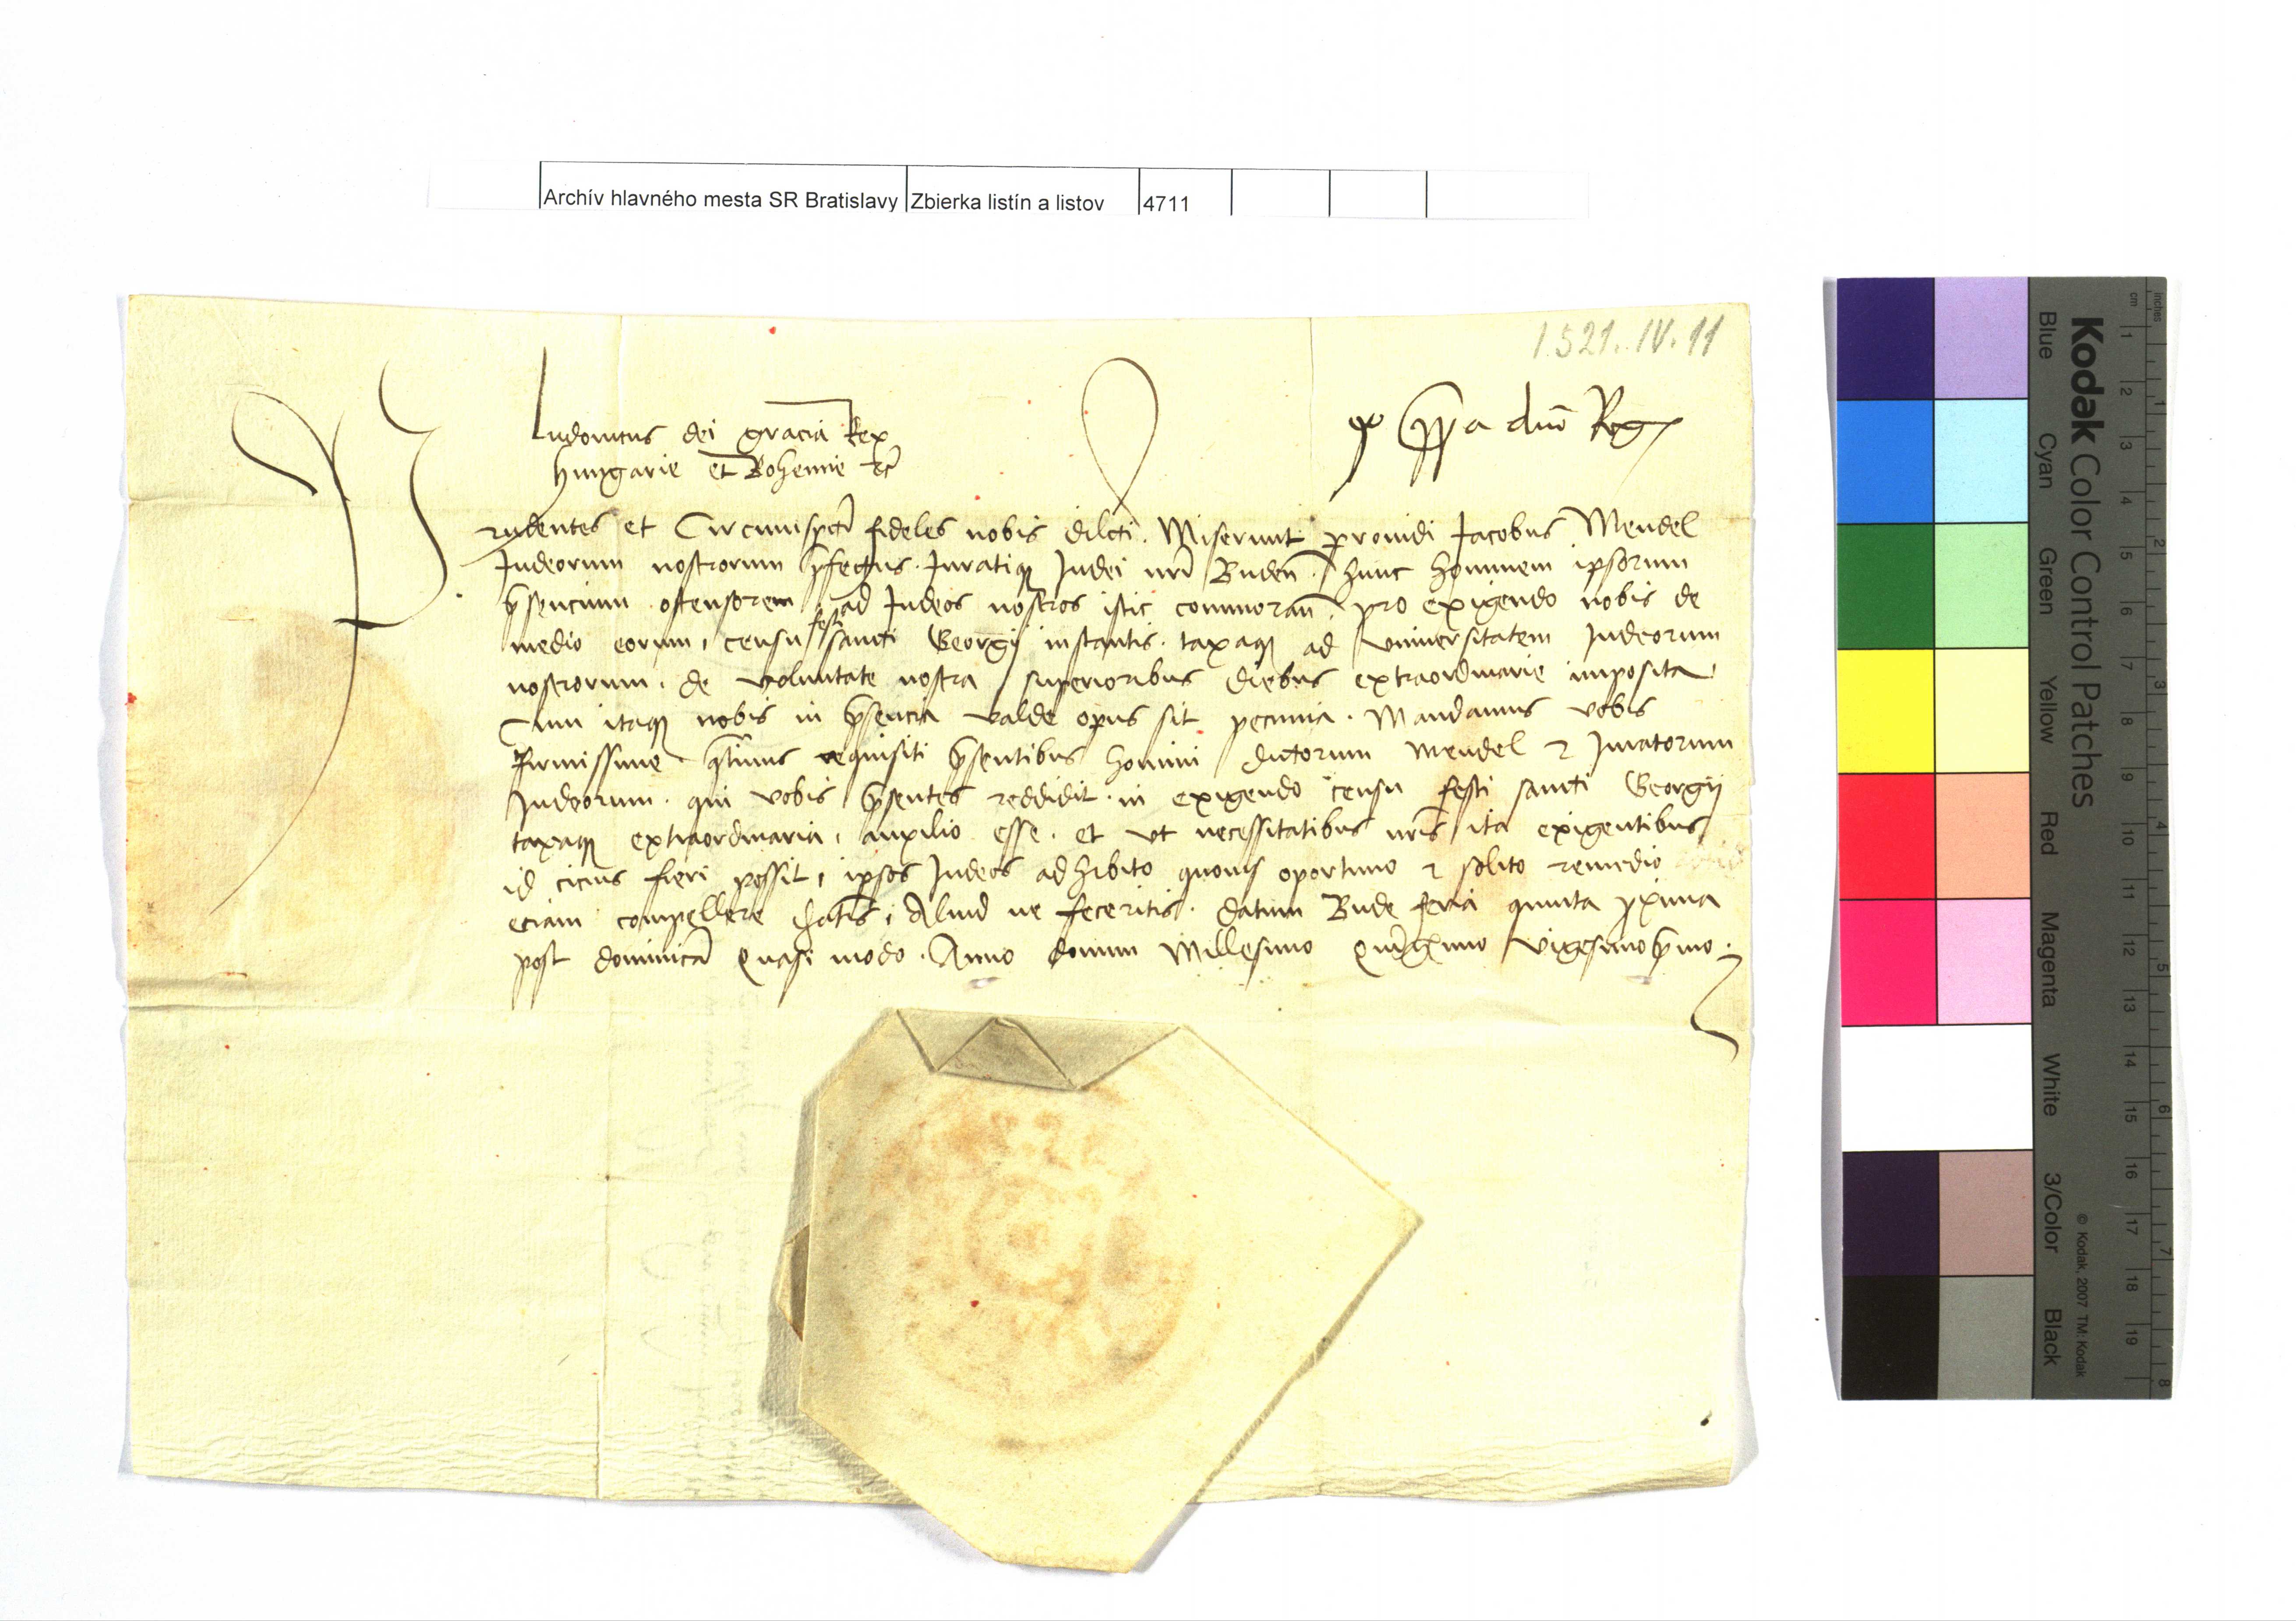 Archív hlavného mesta SR Bratislavy Zbierka listín a listov 4711
1521. IV. 11
Ludovicus dei gracia Rex
Hungarie et Bohemie etc̄
dn̄i Reg
Prudentes et Circumspecti fideles nobis dilcti. Miserunt providi Jacobus Mendel
Judeorum nostrorum p̄fectus. Juratiqꝫ Judei nr̄i Budeñ. hunc hominem ipsorum
p̄sencium ostensorem ad Judeos nostros istic commorañ. pro exigendo nobis de
medio eorum, censu festi sancti Georgij instantis. taxaqꝫ ad universitatem Judeorum
nostrorum. de voluntate nostra superioribus diebus extraordinarie imposita.
Cum itaqꝫ nobis in p̄sencia valde opus sit pecunia. Mandamus vobis
firmissime qt̄inus requisiti p̄sentibus homini dictorum Mendel et Juratorum
Judeorum. qui vobis p̄sentes reddidit. in exigendo censu festi sancti Georgij
taxaqꝫ extraordinaria, auxilio esse. et ut necessitatibus nr̄is ita exigentibus
id cicius fieri possit, ipsos Judeos adhibito quovis oportuno et solito remedio
eciam compellere debeatis, Aliud ne feceritis. Datum Bude feria quinta pxima
post dominicā Quasi modo. Anno domini Millesimo Quīgēmo vigesimop̄mo.
Kodak Color Control Patches
Blue Cyan Green Yellow Red Magenta White 3/Color Black
© Kodak, 2007 TM: Kodak
inches 1 2 3 4 5 6 7 8
cm 1 2 3 4 5 6 7 8 9 10 11 12 13 14 15 16 17 18 19